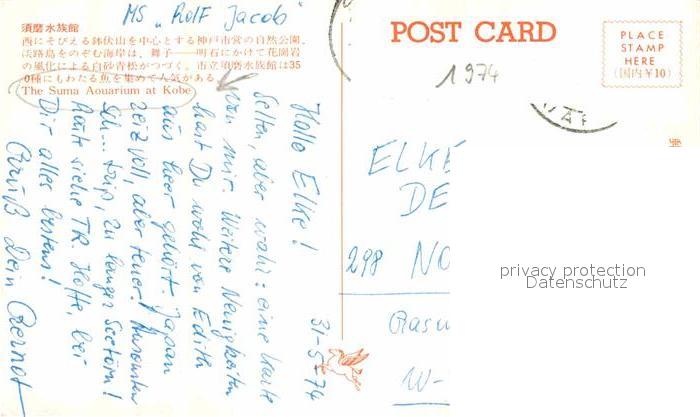 MS „Rolf Jacob"
須磨水族館
西にそびえる鉢伏山を中心とする神戸市営の自然公園。
淡路島をのぞむ海岸は、舞子——明石にかけて花崗岩
の風化による白砂青松がつづく。市立須磨水族館は35
0種にもわたる魚を集めて人気がある。
The Suma Aouarium at Kobe
POST CARD
PLACE
STAMP
HERE
(国内￥10)
1974
31-5-74
Hallo Elke!
Selten, aber wahr: eine Karte
von mir. Weitere Neuigkeiten
hast Du wohl von Edith
aus Leer gehört. Japan
reizvoll, aber teuer! Ansonsten
trip, zu langer Seetörn!
Route siehe TR. Hoffe, bei
Dir alles bestens!
Gruß Dein Gernot
ELKE
DE
298 NO
Rasu
W-
privacy protection
Datenschutz